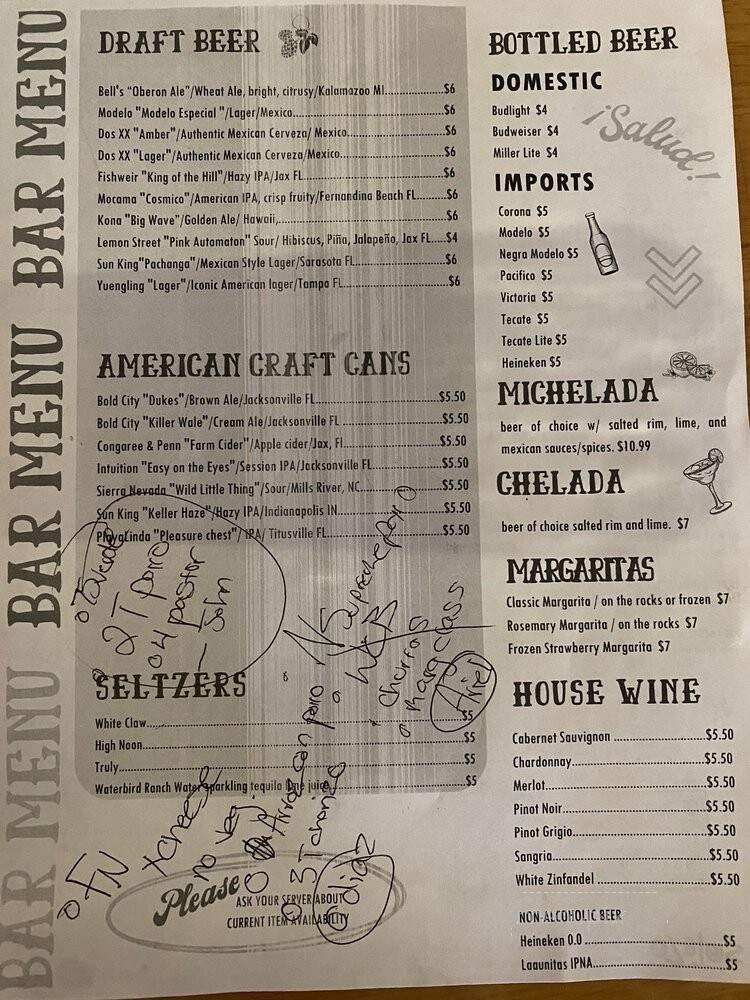 BAR MENU BAR MENU BAR MENU BAR MENU
DRAFT BEER
Bell's "Oberon Ale"/Wheat Ale, bright, citrusy/Kalamazoo MI..................$6
Modelo "Modelo Especial "/Lager/Mexico..................$6
Dos XX "Amber"/Authentic Mexican Cerveza/ Mexico..................$6
Dos XX "Lager"/Authentic Mexican Cerveza/Mexico..................$6
Fishweir "King of the Hill"/Hazy IPA/Jax FL..................$6
Mocama "Cosmico"/American IPA, crisp fruity/Fernandina Beach FL.......$6
Kona "Big Wave"/Golden Ale/ Hawaii,..................$6
Lemon Street "Pink Automaton" Sour/ Hibiscus, Piña, Jalapeño, Jax FL....$4
Sun King"Pachanga"/Mexican Style Lager/Sarasota FL..................$6
Yuengling "Lager"/Iconic American lager/Tampa FL..................$6
AMERICAN CRAFT CANS
Bold City "Dukes"/Brown Ale/Jacksonville FL..................$5.50
Bold City "Killer Wale"/Cream Ale/Jacksonville FL ..................$5.50
Congaree & Penn "Farm Cider"/Apple cider/Jax, Fl..................$5.50
Intuition "Easy on the Eyes"/Session IPA/Jacksonville FL..................$5.50
Sierra Nevada "Wild Little Thing"/Sour/Mills River, NC..................$5.50
Sun King "Keller Haze"/Hazy IPA/Indianapolis IN..................$5.50
Playalinda "Pleasure chest"/ IPA/ Titusville FL..................$5.50
2 T
4 pastor
John
WCB
Ariel
SELTZERS
White Claw..................$5
High Noon..................$5
Truly..................$5
Waterbird Ranch Water sparkling tequila lime juice..................$5
FN
+cheese
no veg
3 T
diaz
Please
ASK YOUR SERVER ABOUT
CURRENT ITEM AVAILABILITY
BOTTLED BEER
DOMESTIC
Budlight $4
Budweiser $4
Miller Lite $4
¡Salud!
IMPORTS
Corona $5
Modelo $5
Negra Modelo $5
Pacifico $5
Victoria $5
Tecate $5
Tecate Lite $5
Heineken $5
MICHELADA
beer of choice w/ salted rim, lime, and
mexican sauces/spices. $10.99
CHELADA
beer of choice salted rim and lime. $7
MARGARITAS
Classic Margarita / on the rocks or frozen $7
Rosemary Margarita / on the rocks $7
Frozen Strawberry Margarita $7
HOUSE WINE
Cabernet Sauvignon ..................$5.50
Chardonnay..................$5.50
Merlot..................$5.50
Pinot Noir..................$5.50
Pinot Grigio..................$5.50
Sangria..................$5.50
White Zinfandel ..................$5.50
NON-ALCOHOLIC BEER
Heineken 0.0 ..................$5
Lagunitas IPNA..................$5